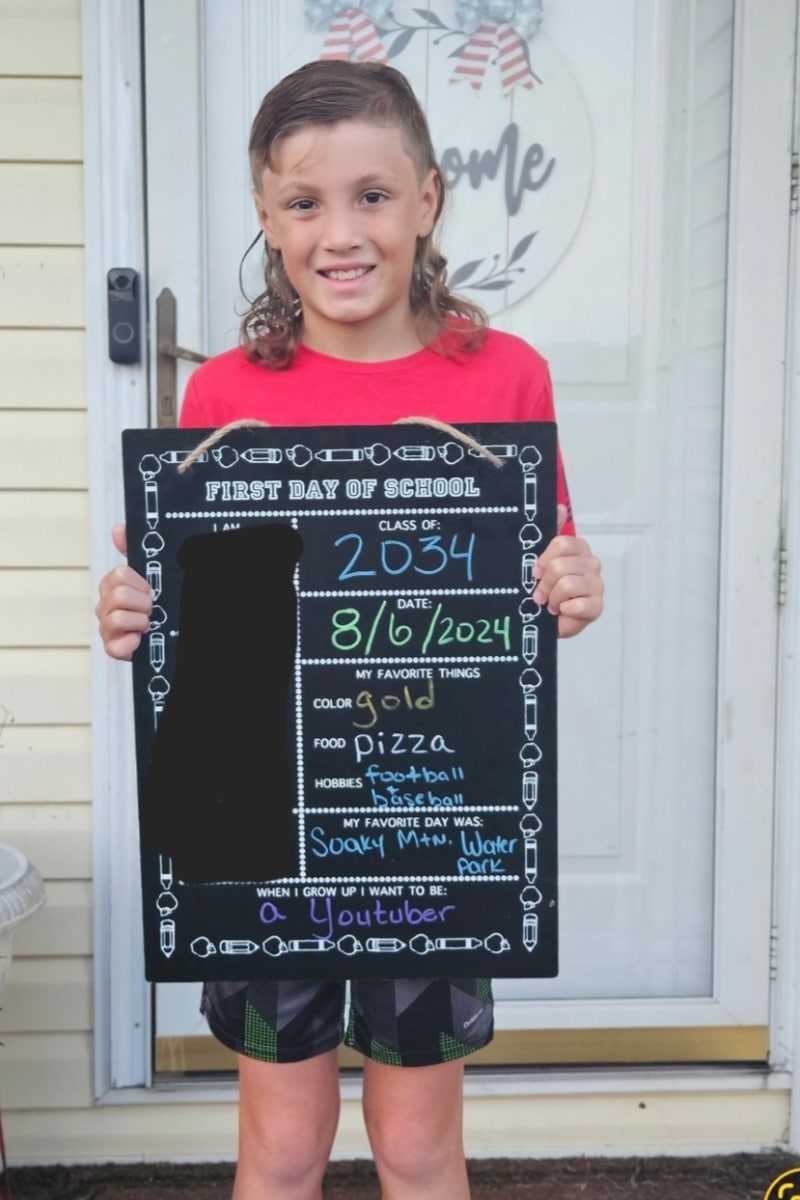 ome
FIRST DAY OF SCHOOL
I AM
CLASS OF:
2034
DATE:
8/6/2024
MY FAVORITE THINGS
COLOR gold
FOOD pizza
HOBBIES football
& baseball
MY FAVORITE DAY WAS:
Soaky Mtn. Water
Park
WHEN I GROW UP I WANT TO BE:
a Youtuber